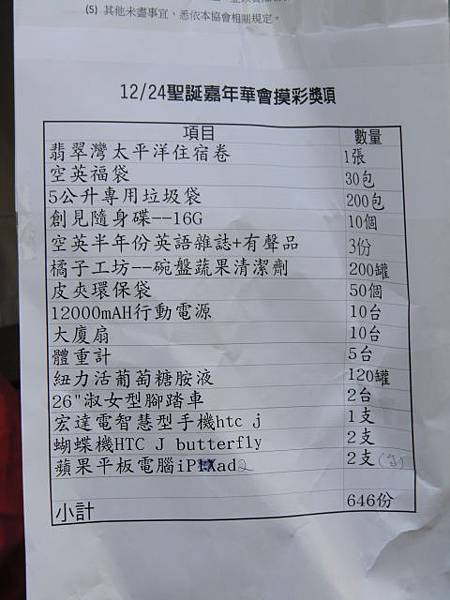 (5) 其他未盡事宜，悉依本協會相關規定。
12/24聖誕嘉年華會摸彩獎項
項目 數量
翡翠灣太平洋住宿卷 1張
空英福袋 30包
5公升專用垃圾袋 200包
創見隨身碟--16G 10個
空英半年份英語雜誌+有聲品 3份
橘子工坊--碗盤蔬果清潔劑 200罐
皮夾環保袋 50個
12000mAH行動電源 10台
大廈扇 10台
體重計 5台
紐力活葡萄糖胺液 120罐
26"淑女型腳踏車 2台
宏達電智慧型手機htc j 1支
蝴蝶機HTC J butterfly 2支
蘋果平板電腦iPad2 2支
小計 646份